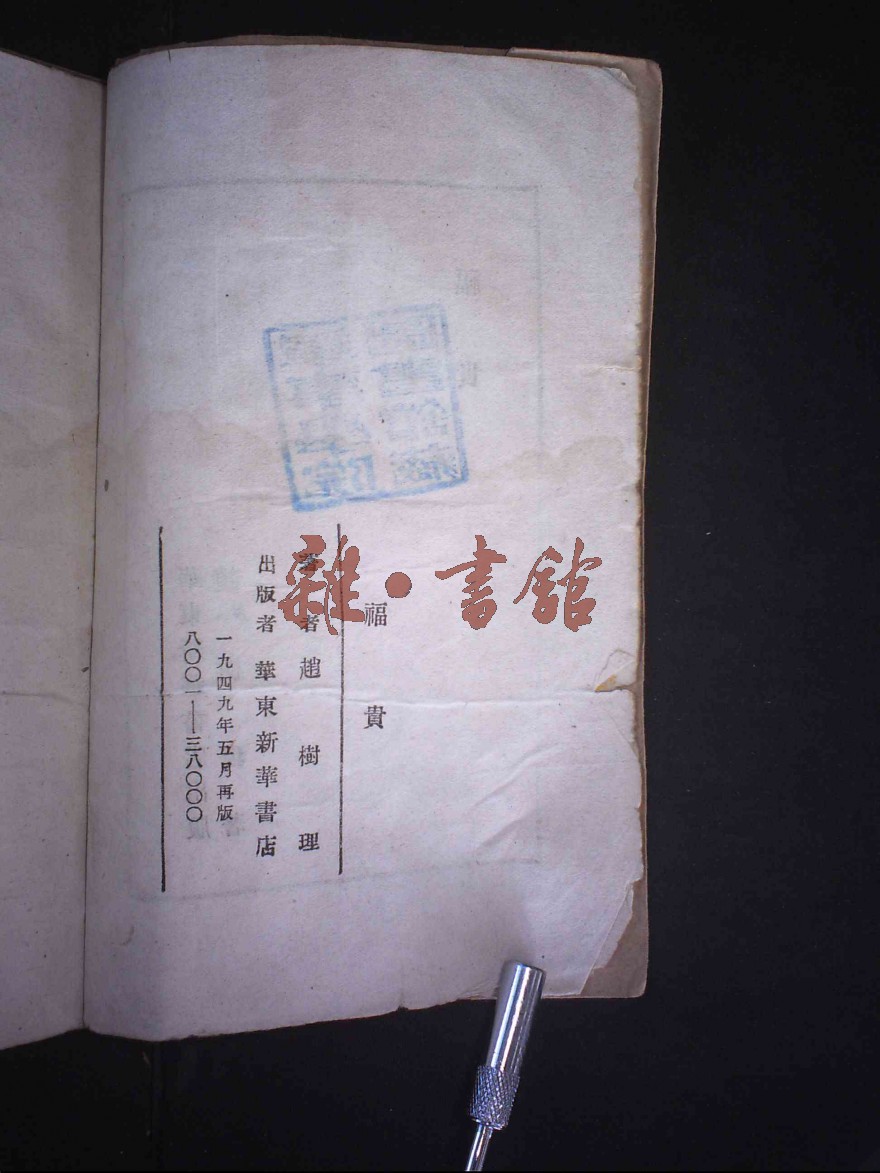 福貴
著者趙樹理
出版者華東新華書店
一九四九年五月再版
八〇〇一——三八〇〇〇
雜·書舘